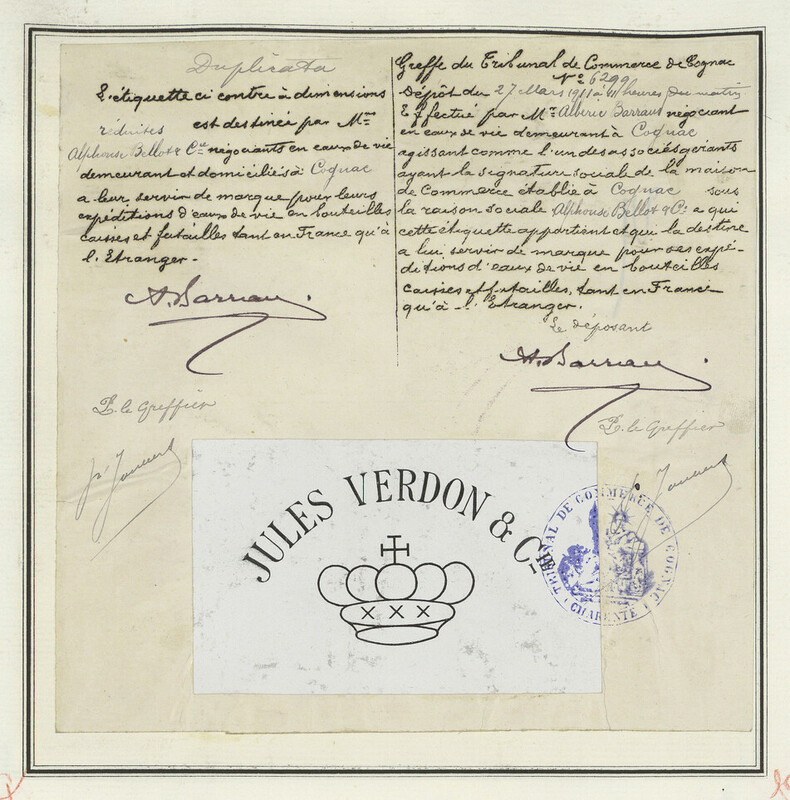 Duplicata
L'étiquette ci contre à dimensions
réduites est destinée par Mrs
Alphonse Bellot & Cie négociants en eaux de vie
demeurant et domiciliés à Cognac
a leur servir de marque pour leurs
expéditions d'eaux de vie en bouteilles
caisses et futailles tant en France qu'à
l'Etranger.
A. Barraud
P. le Greffier
Greffe du Tribunal de Commerce de Cognac
No 6299
Dépôt du 27 Mars 1911 à 11 heures du matin
Effectué par Mr Albéric Barraud négociant
en eaux de vie demeurant à Cognac
agissant comme l'un des associés gérants
ayant la signature sociale de la maison
de Commerce établie à Cognac sous
la raison sociale Alphonse Bellot & Cie a qui
cette étiquette appartient et qui la destine
a lui servir de marque pour ses expé-
ditions d'eaux de vie en bouteilles
caisses et futailles, tant en France
qu'à l'Etranger.
Le déposant
A. Barraud
P. le Greffier
JULES VERDON & Cie
XXX
TRIBUNAL DE COMMERCE DE COGNAC
CHARENTE